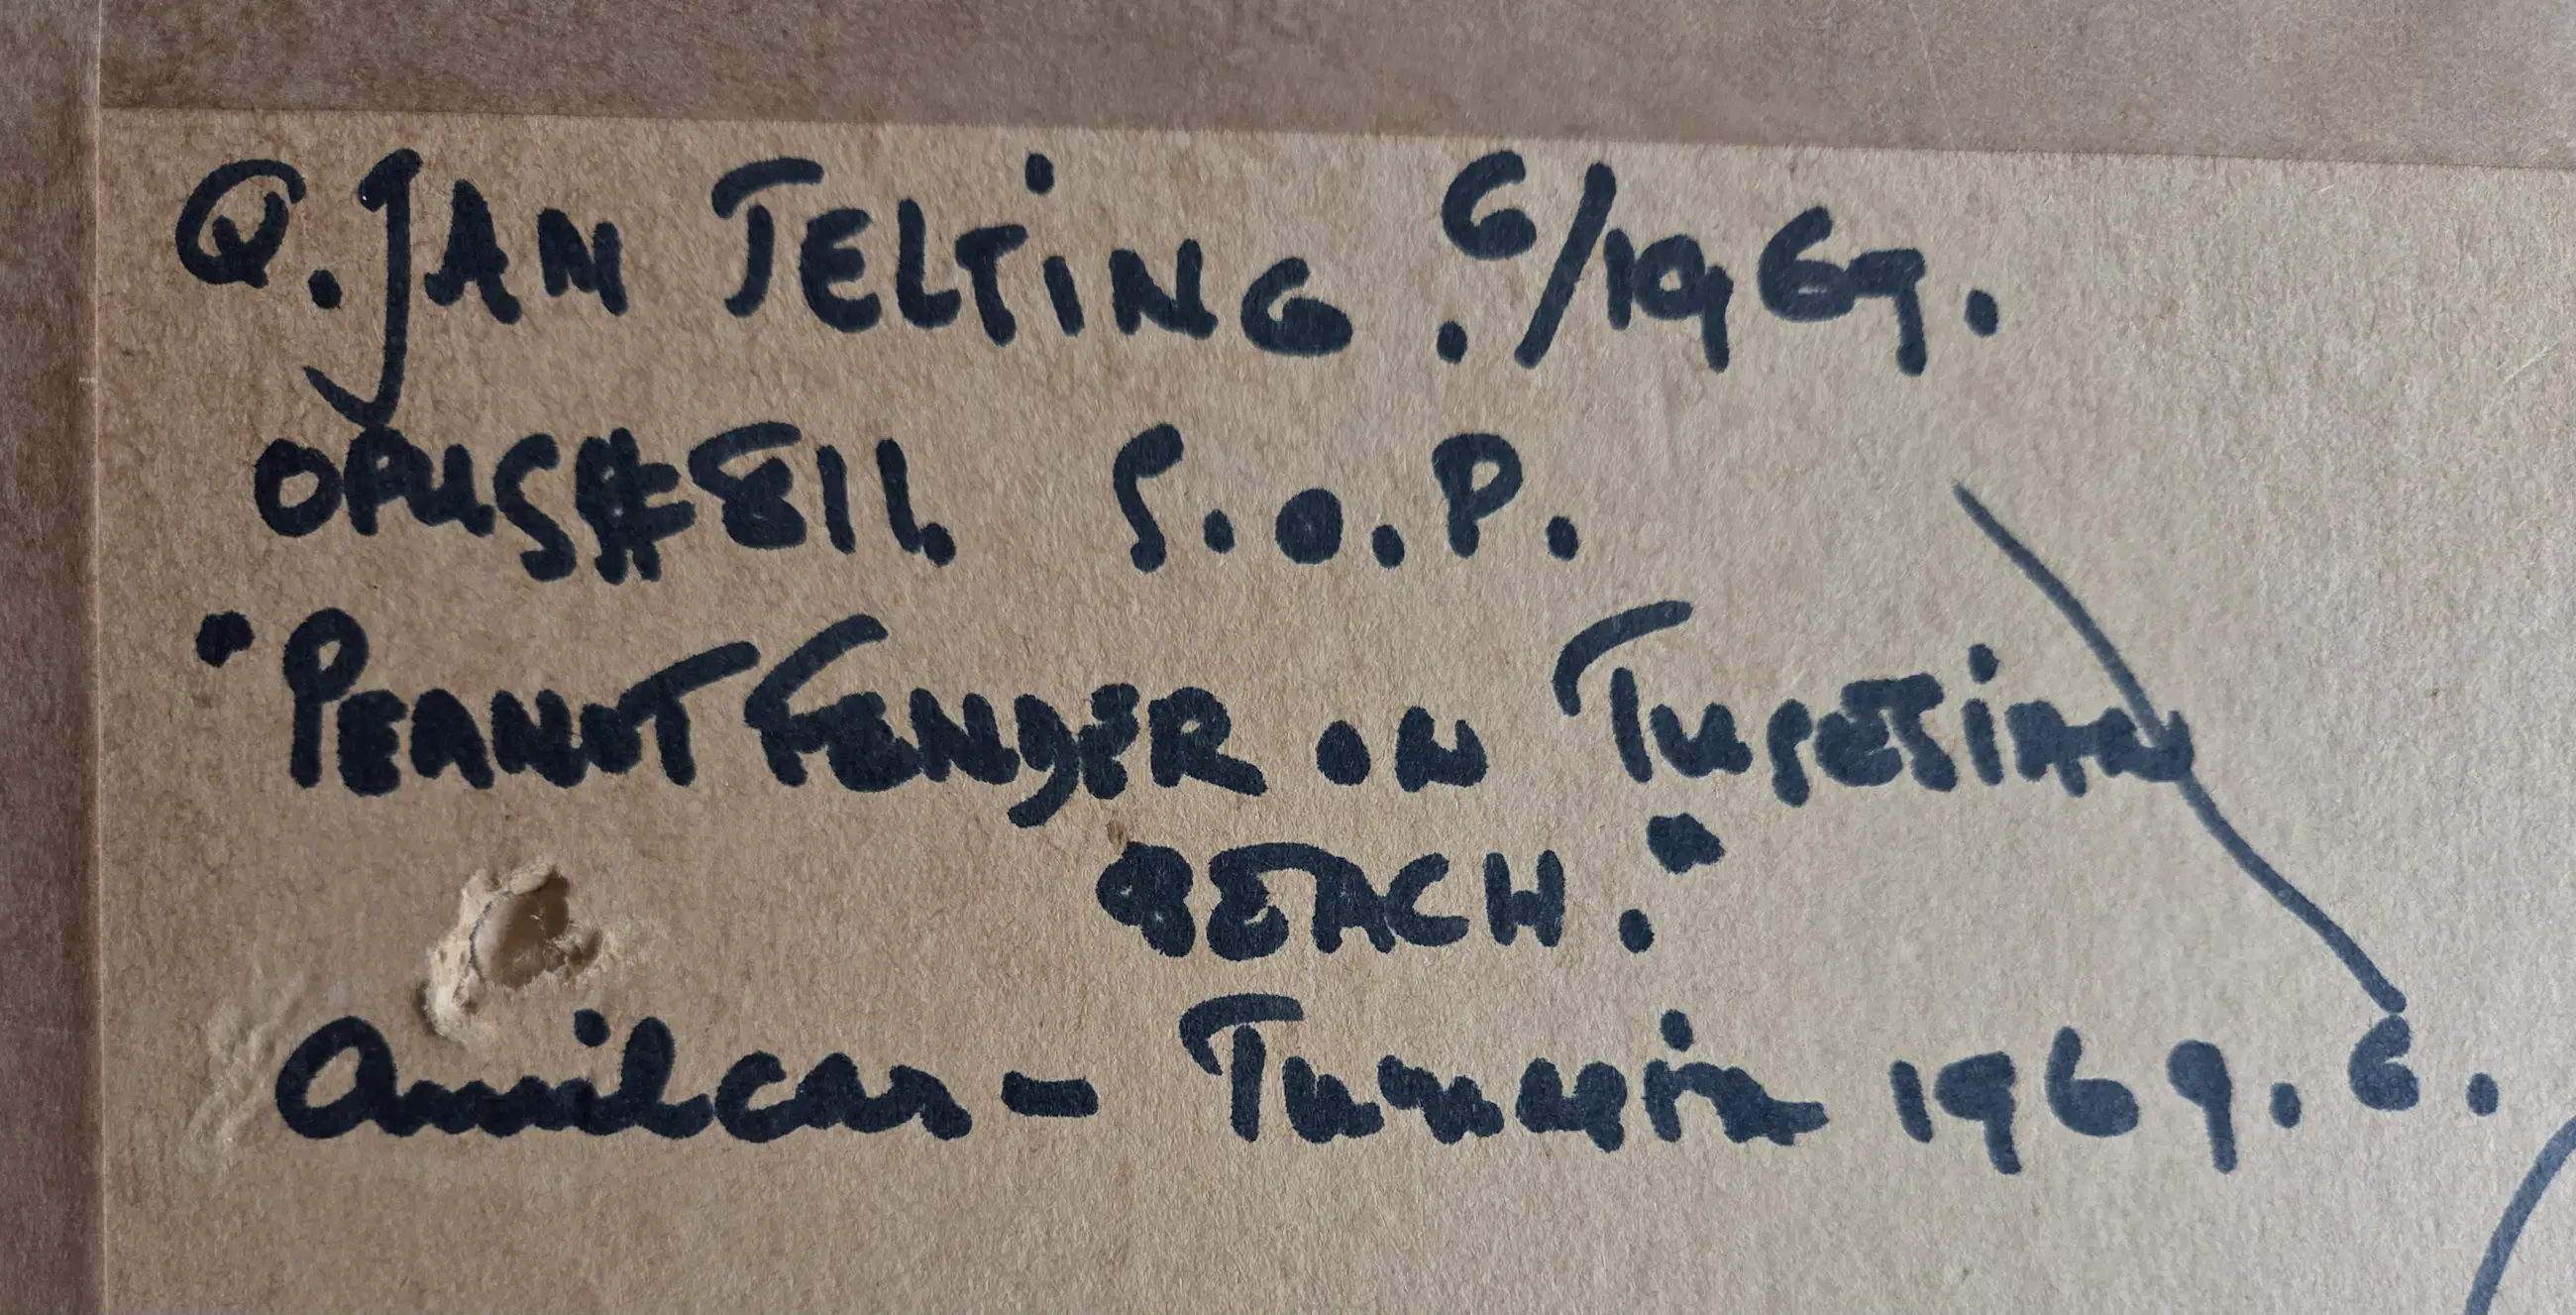 Q. JAN TELTING. 6/1969.
OPUS # 811. S.O.P.
"PEANUT FENDER ON TUNESIAN
BEACH."
Amilcar - Tunesia 1969. 6.